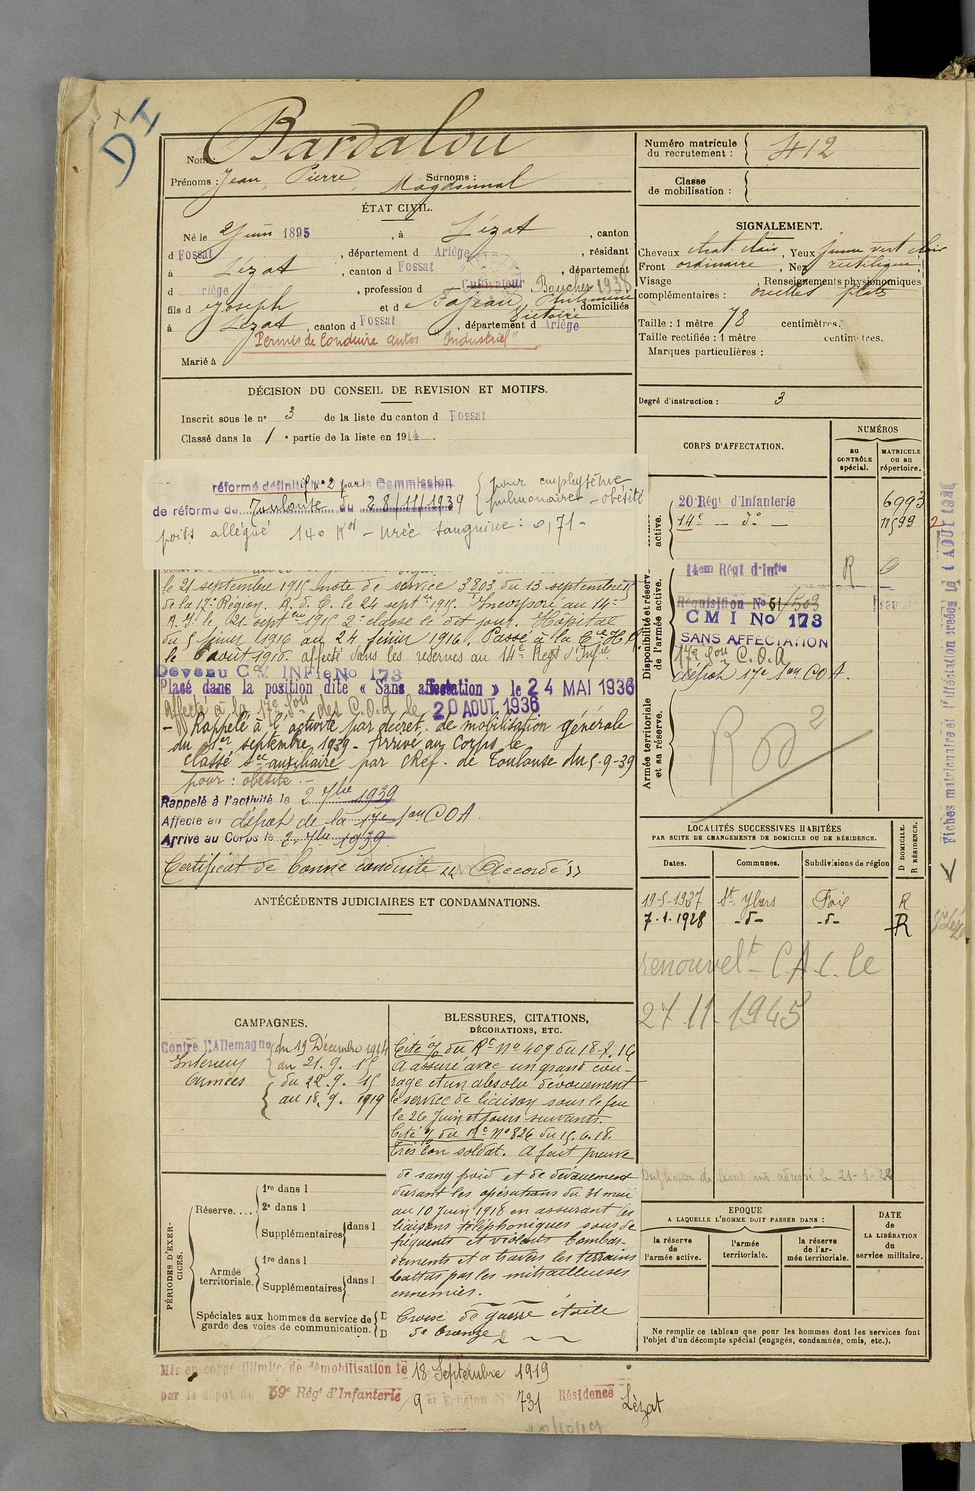 DI
Nom : Bardalou
Prénoms : Jean, Pierre, Surnoms :
ÉTAT CIVIL.
Né le 2 Juin 1895, à Lézat, canton
d Fossat, département d Ariège, résidant
à Lézat, canton d Fossat, département
d Ariège, profession d Cultivateur Boucher 1938
fils d Joseph et d Fajeau, Philomène Victoire, domiciliés
à Lézat, canton d Fossat, département d Ariège
Permis de Conduire autos "Industriel"
Marié à
DÉCISION DU CONSEIL DE REVISION ET MOTIFS.
Inscrit sous le n° 3 de la liste du canton d Fossat
Classé dans la 1 e partie de la liste en 1914
réformé définitif n° 2 par la Commission
de réforme de Toulouse du 28/11/1939
pour emphysème
pulmonaire - obésité
poids allégué 140 Kos - urée sanguine : 0,71 -
le 21 septembre 1915 note de service 3803 du 13 septembre
de la 17e Région. A. d. C. le 24 sept 1915. Incorporé au 14e
R. I. le 21 septembre 1915 2e classe le dit jour. Hôpital
du 5 février 1916 au 24 février 1916. Passé à la Cie H.R.
le août 1918. affecté dans les réserves au 14e Régt d'Infie.
Devenu C.M. INFIE No 173
Placé dans la position dite « Sans affectation » le 24 MAI 1936
Affecté à la 17e son des C.O.A le 20 AOUT 1936
- Rappelé à l'activité par décret de mobilisation générale
du 1er septembre 1939 - Arrivé au Corps le
classé sce auxiliaire par chef. de Toulouse du 5-9-39
pour : obésité -
Rappelé à l'activité le 2 7bre 1939
Affecté au dépot de la 17e son COA
Arrivé au Corps le 2 7bre 1939
Certificat de bonne conduite "Accordé"
ANTÉCÉDENTS JUDICIAIRES ET CONDAMNATIONS.
CAMPAGNES.
Contre l'Allemagne du 19 Décembre 1914
Intérieur au 21. 9. 15
Armées du 22. 9. 15
au 18. 9. 1919
BLESSURES, CITATIONS,
DÉCORATIONS, ETC.
Cité o/ du Rt N° 409 du 18.7.16
A assuré avec un grand cou-
rage et un absolu dévouement
le service de liaison sous le feu
le 26 Juin et jours suivants.
Cité o/ du Rt N° 826 du 15.6.18.
Très bon soldat. A fait preuve
de sang froid et de dévouement
durant les opérations du 31 mai
au 10 Juin 1918 en assurant les
liaisons téléphoniques sous de
fréquents et violents bombar-
dements et à travers les terrains
battus par les mitrailleuses
ennemies.
Croix de guerre étoile
de bronze
PÉRIODES D'EXER-
CICES.
Réserve....
1re dans l
2e dans l
Supplémentaires dans l
Armée
territoriale.
1re dans l
Supplémentaires dans l
Spéciales aux hommes du service de
garde des voies de communication.
D
D
Mis en congé illimité de démobilisation le 18 Septembre 1919
par le dépôt du 59e Régt d'Infanterie 9er Echelon No 731 Résidence Lézat
Numéro matricule
du recrutement : 412
Classe
de mobilisation :
SIGNALEMENT.
Cheveux chat. clair, Yeux jaune vert clair
Front ordinaire, Nez rectiligne
Visage , Renseignements physionomiques
complémentaires : oreilles plates
Taille : 1 mètre 78 centimètres.
Taille rectifiée : 1 mètre centimètres.
Marques particulières :
Degré d'instruction : 3
CORPS D'AFFECTATION.
NUMÉROS
au
CONTRÔLE
spécial.
MATRICULE
OU AU
répertoire.
active.
20 Régt d'Infanterie 6993
14e - do - 11599
Disponibilité et réserve
de l'armée active.
14em Régt d'Infie R
Réquisition No 51/503
CMI No 173
SANS AFFECTATION
17e son C.O.A
dépot 17e son COA.
Armée territoriale
et sa réserve.
LOCALITÉS SUCCESSIVES HABITÉES
PAR SUITE DE CHANGEMENTS DE DOMICILE OU DE RÉSIDENCE.
Dates. Communes. Subdivisions de région
D DOMICILE.
R RÉSIDENCE.
19-5-1927 St Ybars Foix R
7.1.1928 -d- -d- R
renouvelt C.A.C. le
27.11.1945
EPOQUE
A LAQUELLE L'HOMME DOIT PASSER DANS :
la réserve
de
l'armée active.
l'armée
territoriale.
la réserve
de l'ar-
mée territoriale.
DATE
de
LA LIBÉRATION
du
service militaire.
Ne remplir ce tableau que pour les hommes dont les services font
l'objet d'un décompte spécial (engagés, condamnés, omis, etc.).
Fiches matriculaire et d'affectation créées le 4 AOUT 1936